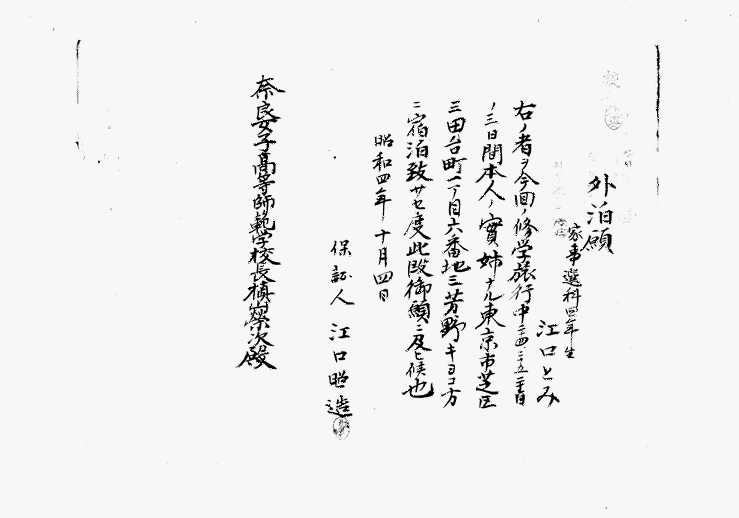 外泊願
家事選科四年生
江口とみ
右ノ者ヲ今回ノ修学旅行中二四二五二六日
ノ三日間本人ノ實姉ナル東京市芝区
三田台町一丁目六番地三芳野キヨコ方
ニ宿泊致サセ度此段御願ニ及ヒ候也
昭和四年十月四日
保証人 江口昭造
奈良女子高等師範学校長槙山榮次殿